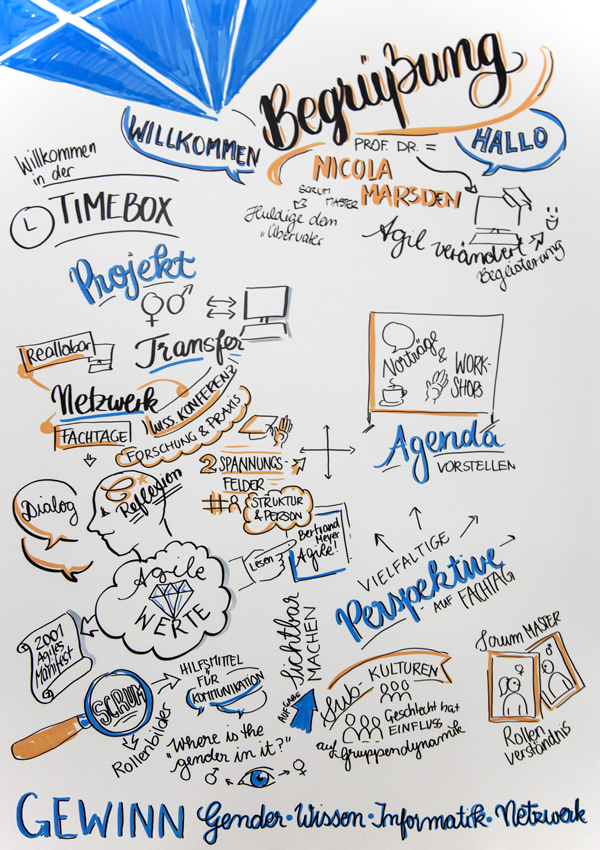 Begrüßung
WILLKOMMEN
HALLO
PROF. DR. =
NICOLA
MARSDEN
SCRUM
MASTER
Huldige dem
"Übervater
Agil verändert
Begeisterung
Willkommen
in der
TIMEBOX
Projekt
Transfer
Reallabor
Netzwerk
FACHTAGE
WISS. KONFERENZ
FORSCHUNG & PRAXIS
2 SPANNUNGS-
FELDER
STRUKTUR
& PERSON
Vorträge
& WORK-
SHOPS
Agenda
VORSTELLEN
Dialog
Reflexion
Agile
WERTE
Lesen
Bertrand
Meyer
Agile!
VIELFÄLTIGE
Perspektive
AUF FACHTAG
2001
Agiles
Manifest
SCRUM
Rollenbilder
HILFSMITTEL
FÜR
KOMMUNIKATION
Sichtbar
MACHEN
AUFGABE
Where is the
"gender in it?"
Sub-KULTUREN
Geschlecht hat
EINFLUSS
auf Gruppendynamik
Scrum MASTER
Rollen
verständnis
GEWINN Gender·Wissen·Informatik·Netzwerk